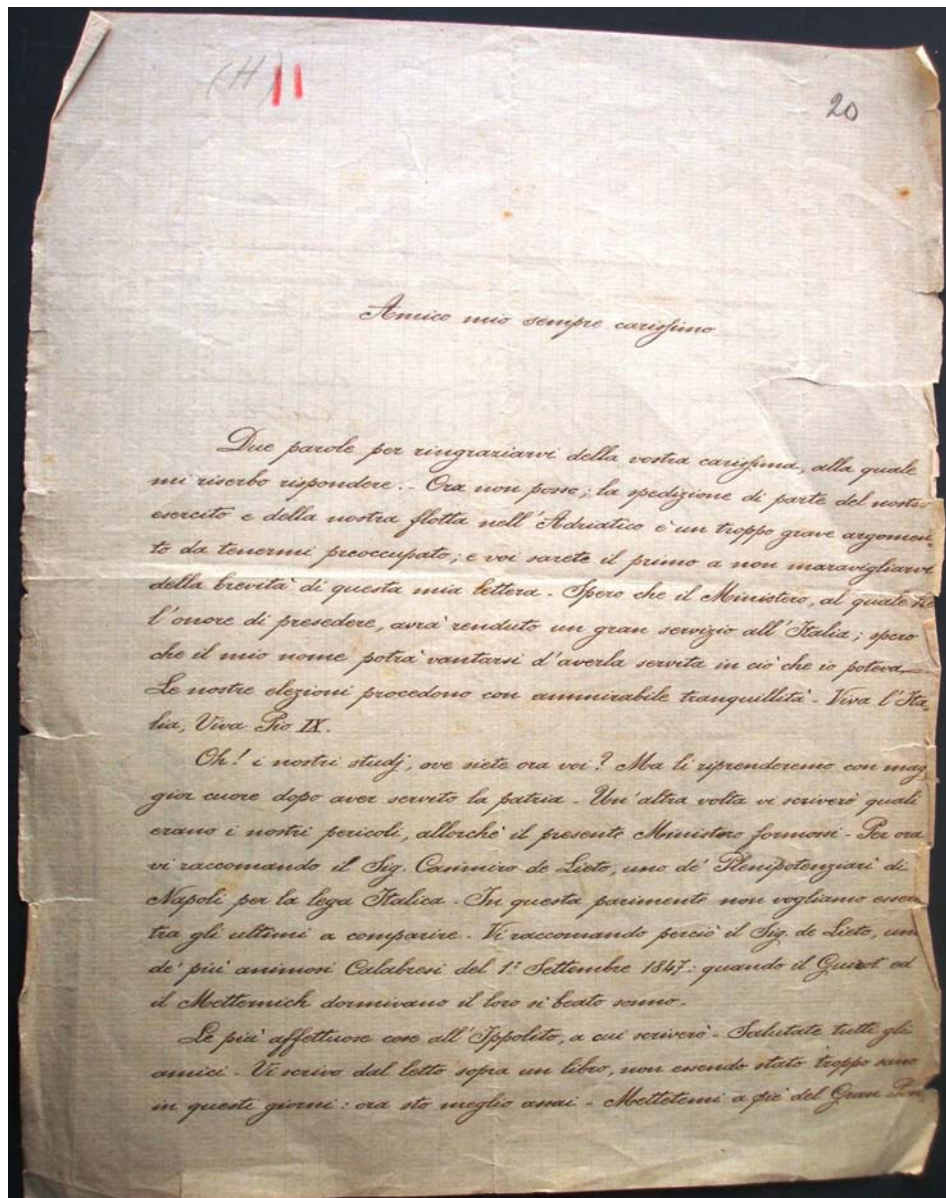 (H) 11
20
Amico mio sempre carissimo
Due parole per ringraziarvi della vostra carissima, alla quale
mi riserbo rispondere. - Ora non posso; la spedizione di parte del nostro
esercito e della nostra flotta nell'Adriatico è un troppo grave argomen-
to da tenermi preoccupato; e voi sarete il primo a non maravigliarvi
della brevità di questa mia lettera - Spero che il Ministero, al quale ho
l'onore di presedere, avrà renduto un gran servizio all'Italia; spero
che il mio nome potrà vantarsi d'averla servita in ciò che io poteva -
Le nostre elezioni procedono con ammirabile tranquillità - Viva l'Ita-
lia, Viva Pio IX.
Oh! i nostri studj, ove siete ora voi? Ma li riprenderemo con mag-
gior cuore dopo aver servito la patria - Un'altra volta vi scriverò quali
erano i nostri pericoli, allorchè il presente Ministero formossi - Per ora
vi raccomando il Sig. Casimiro de Lieto, uno de' Plenipotenziari di
Napoli per la lega Italica - In questa parimente non vogliamo essere
tra gli ultimi a comparire - Vi raccomando perciò il Sig. de Lieto, uno
de' più animosi Calabresi del 1º Settembre 1847: quando il Guizot ed
il Metternich dormivano il loro sì beato sonno.
Le più affettuose cose all'Ippolito, a cui scriverò - Salutate tutti gli
amici - Vi scrivo dal letto sopra un libro, non essendo stato troppo sano
in questi giorni: ora sto meglio assai - Mettetemi a piè del Gran Pon